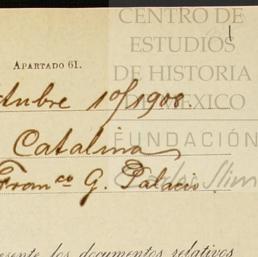 CENTRO DE
ESTUDIOS
DE HISTORIA
DE MÉXICO
FUNDACIÓN
Carlos Slim
1
APARTADO 61.
ctubre 10/1908.
Catalina
Franco G. Palacio.
esente los documentos relativos